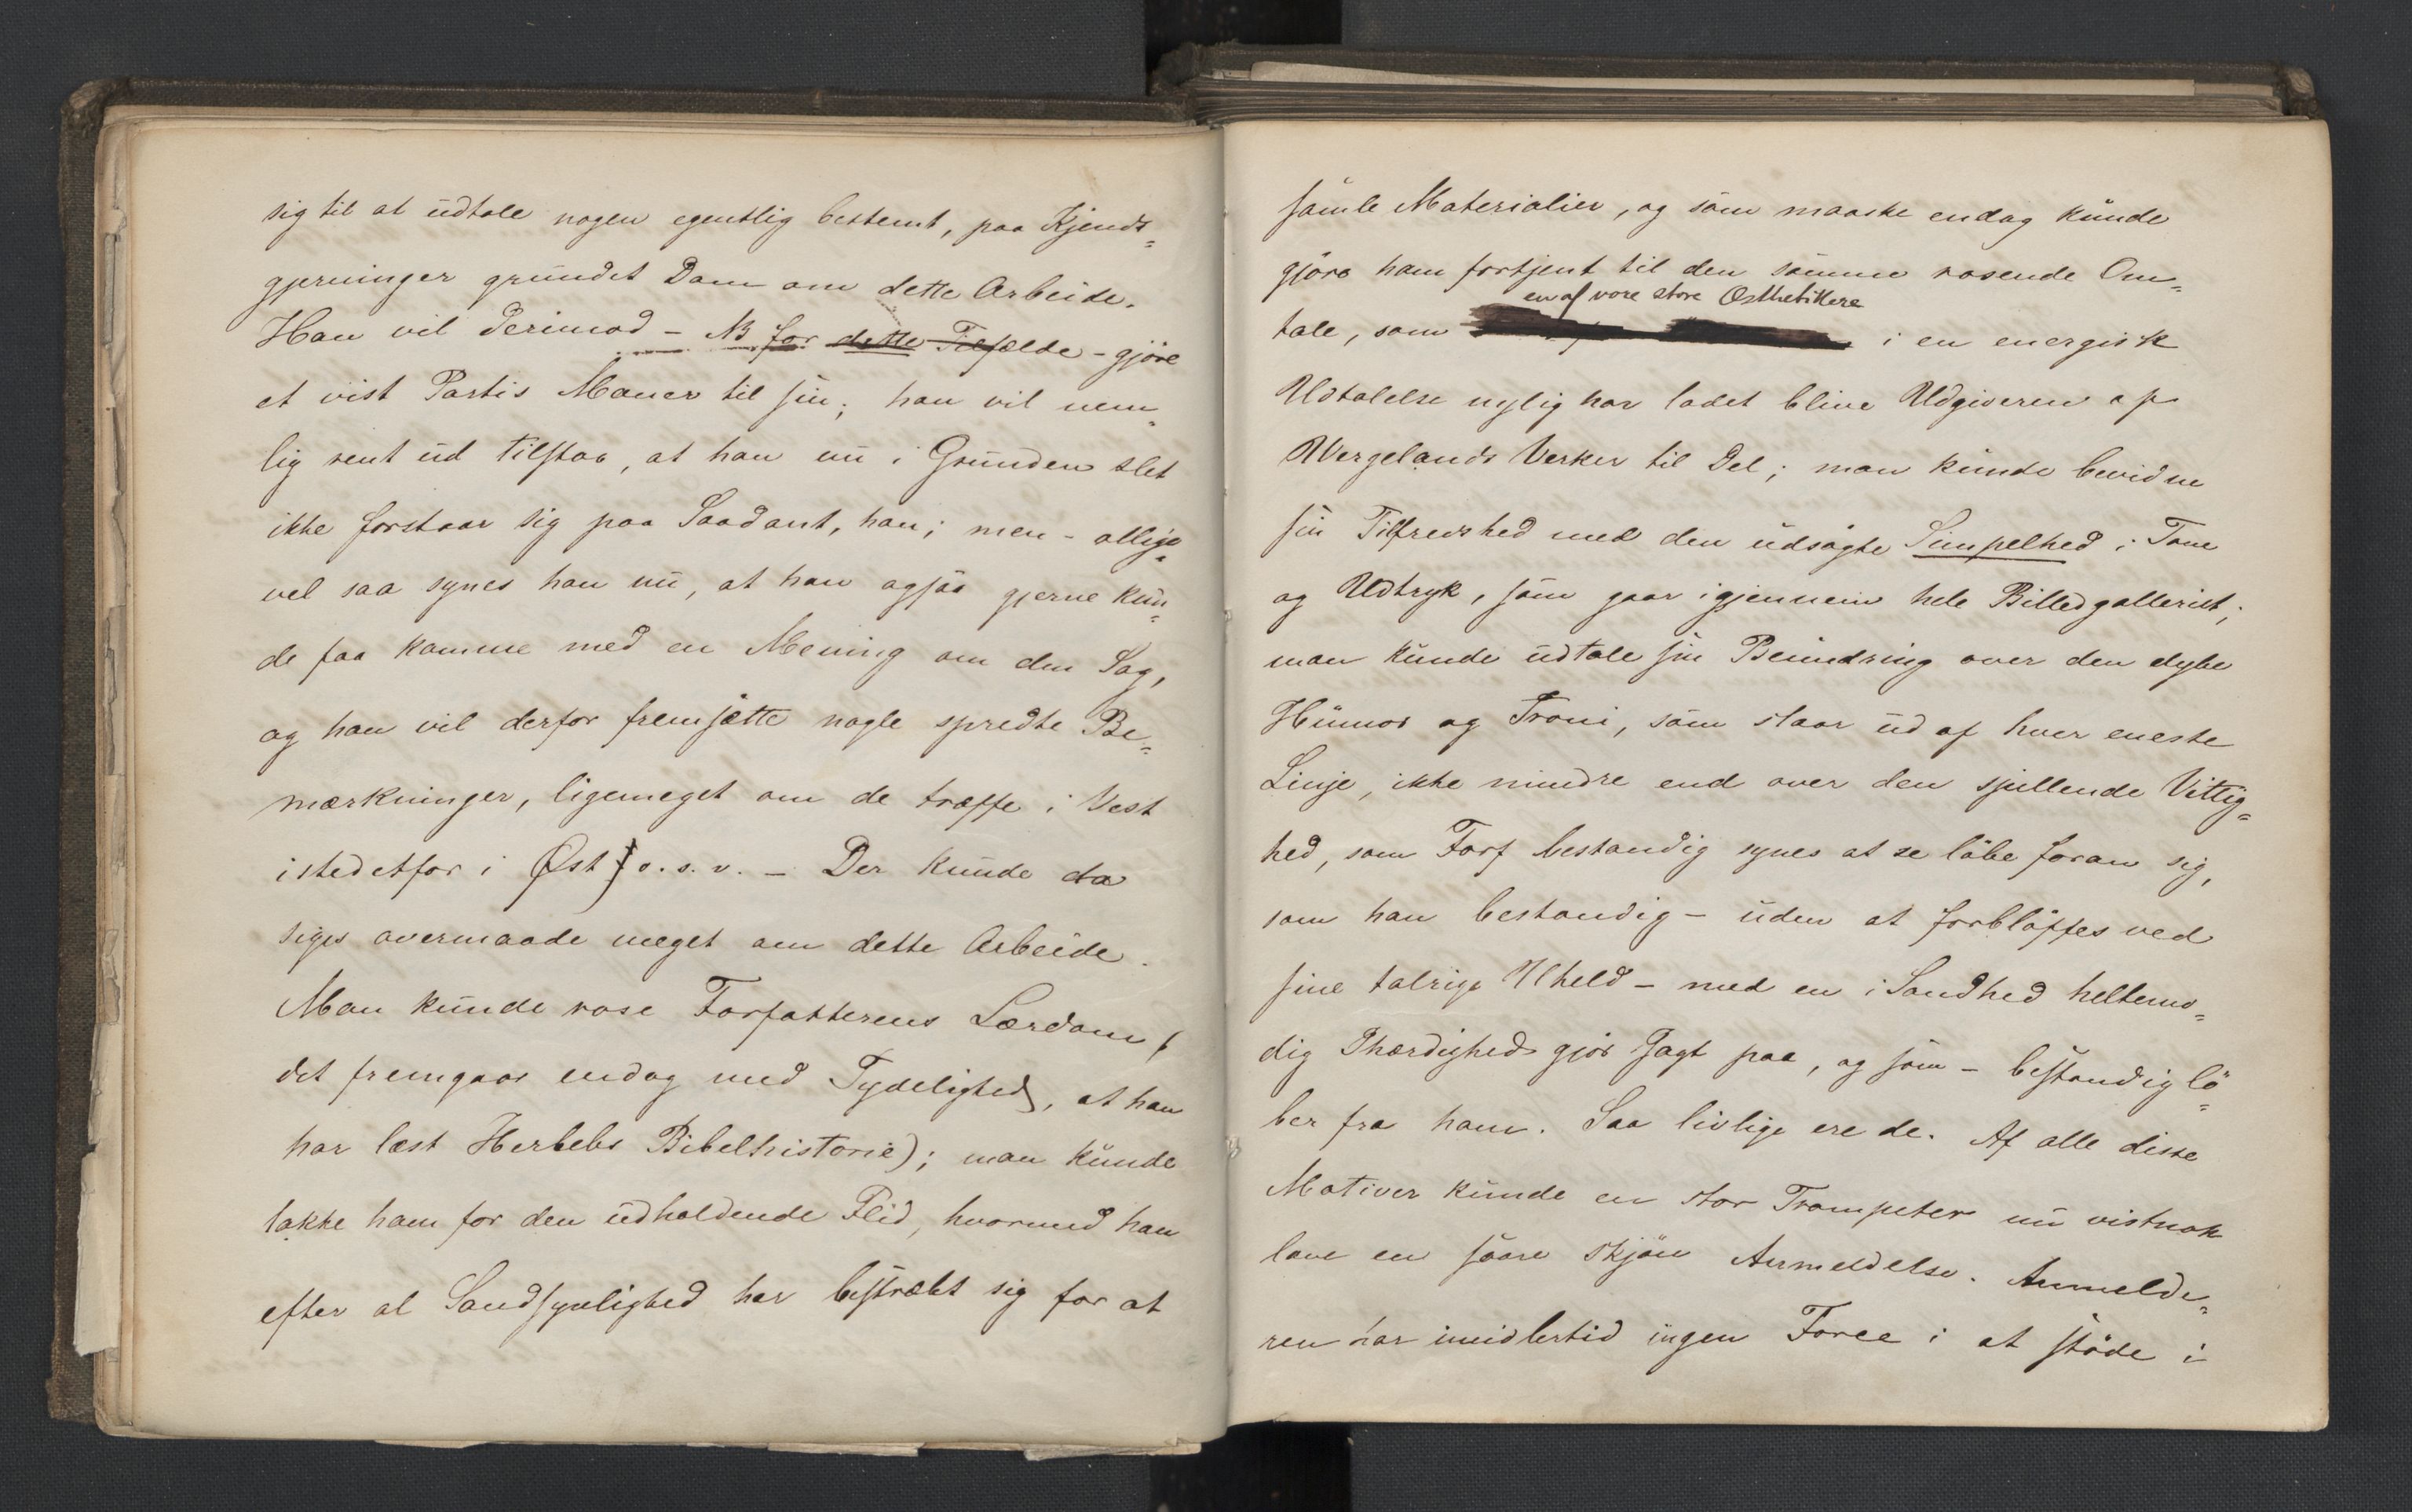 sig til at udtale nogen egentlig bestemt, paa Kjends=
gjerninger grundet Dom om dette Arbeide.
Han vil derimod – NB for dette Tilfælde – gjöre
et vist Partis Maneer til sin; han vil nem=
lig rent ud tilstaa, at han nu i Grunden slet
ikke forstaar sig paa Saadant, han; men – allige=
vel saa synes han nu, at han ogsaa gjerne kun=
de faa komme med en Mening om den Sag,
og han vil derfor fremsætte nogle spredte Be=
mærkninger, ligemeget om de træffe i Vest
istedetfor i Øst o. s. v. – Der kunde da
siges overmaade meget om dette Arbeide.
Man kunde rose Forfatterens Lærdom (
det fremgaar endog med Tydelighed, at han
har læst Herslebs Bibelhistorie); man kunde
takke ham for den udholdende Flid, hvormed han
efter al Sandsynlighed har bestræbt sig for at
samle Materialier, og som maaske endog kunde
gjöre ham fortjent til den samme rosende Om=
en af vore store Æsthetikere
tale, som i en energisk
Udtalelse nylig har ladet blive Udgiveren af
Wergelands Verker til Del; man kunde bevidne
sin Tilfredshed med den udsögte Simpelhed i Tone
og Udtryk, som gaar igjennem hele Billedgalleriet;
man kunde udtale sin Beundring over den dybe
Humor og Ironi, som slaar ud af hver eneste
Linje, ikke mindre end over den spillende Vittig=
hed, som Forf bestandig synes at se löbe foran sig,
som han bestandig – uden at forblöffes ved
sine talrige Uheld – med en i Sandhed heltemo=
dig Ihærdighed gjör Jagt paa, og som – bestandig lö=
ber fra ham. Saa livlige ere de. Af alle disse
Motiver kunde en stor Trompeter nu vistnok
lave en saare skjön Anmeldelse. Anmelde=
ren har imidlertid ingen Force i at stöde i